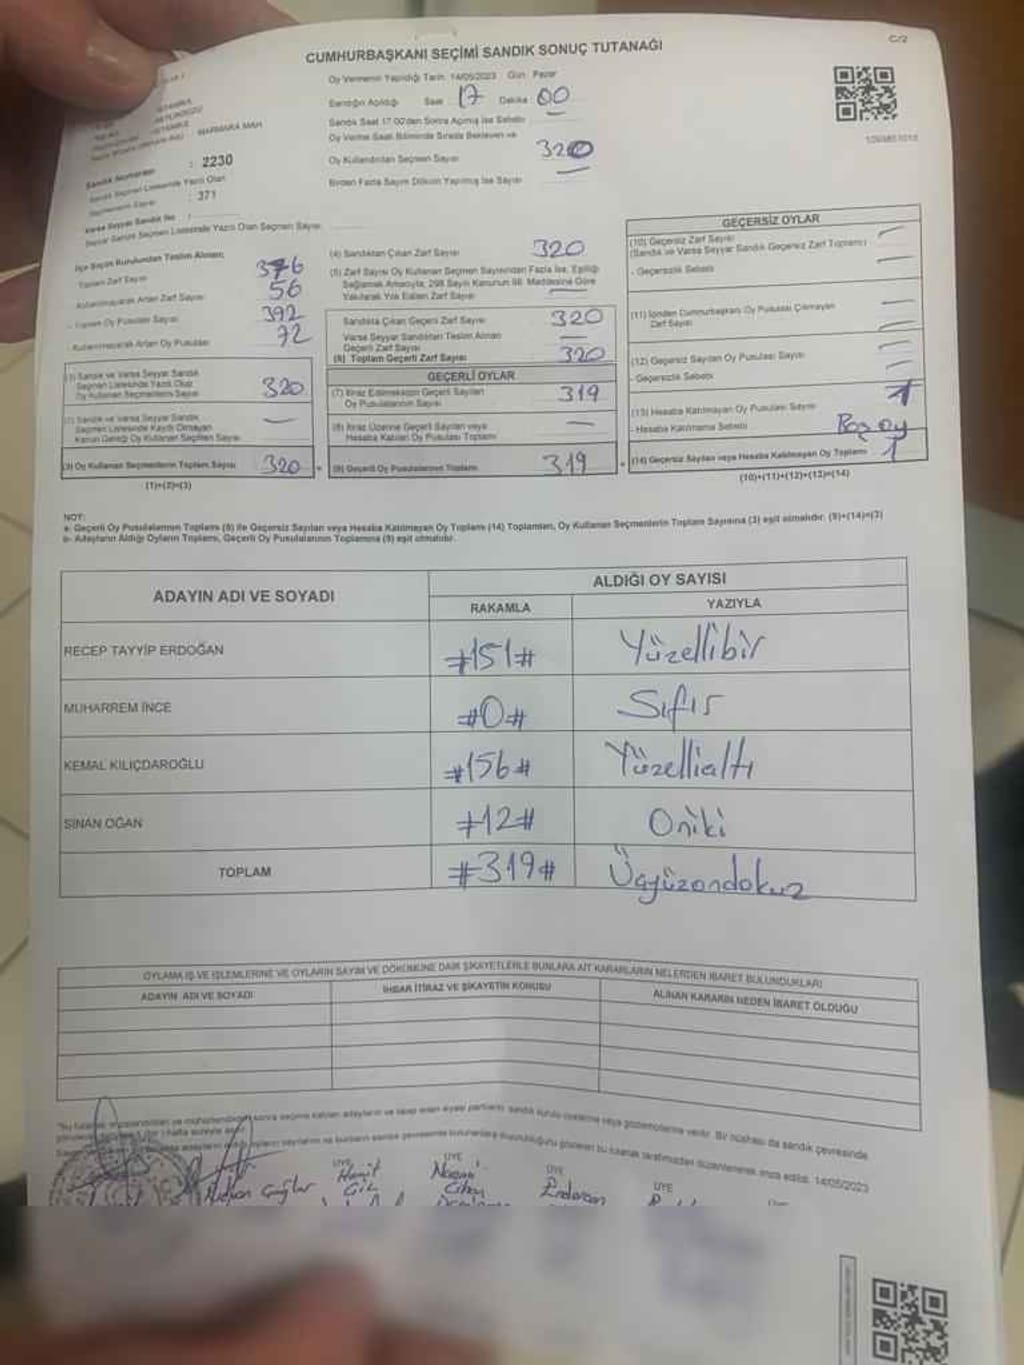 C/2
CUMHURBAŞKANI SEÇİMİ SANDIK SONUÇ TUTANAĞI
Oy Vermenin Yapıldığı Tarih: 14/05/2023 Gün: Pazar
Sandığın Açıldığı Saat: 17 Dakika: 00
Sandık Saat 17.00'den Sonra Açılmış İse Sebebi: —
Oy Verme Saati Bitiminde Sırada Bekleyen ve
Oy Kullandırılan Seçmen Sayısı 320
Birden Fazla Sayım Döküm Yapılmış İse Sayısı —
MARMARA MAH
Sandık Numarası : 2230
Sandık Seçmen Listesinde Yazılı Olan
Seçmenlerin Sayısı : 371
Varsa Seyyar Sandık No :
Seyyar Sandık Seçmen Listesinde Yazılı Olan Seçmen Sayısı:
İlçe Seçim Kurulundan Teslim Alınan;
- Toplam Zarf Sayısı 376
- Kullanılmayarak Artan Zarf Sayısı 56
- Toplam Oy Pusulası Sayısı 392
- Kullanılmayarak Artan Oy Pusulası 72
(1) Sandık ve Varsa Seyyar Sandık
Seçmen Listesinde Yazılı Olup
Oy Kullanan Seçmenlerin Sayısı 320
(2) Sandık ve Varsa Seyyar Sandık
Seçmen Listesinde Kaydı Olmayan
Kanun Gereği Oy Kullanan Seçmen Sayısı —
(3) Oy Kullanan Seçmenlerin Toplam Sayısı 320
(1)+(2)=(3)
(4) Sandıktan Çıkan Zarf Sayısı 320
(5) Zarf Sayısı Oy Kullanan Seçmen Sayısından Fazla İse, Eşitliği
Sağlamak Amacıyla, 298 Sayılı Kanunun 98. Maddesine Göre
Yakılarak Yok Edilen Zarf Sayısı —
Sandıkta Çıkan Geçerli Zarf Sayısı 320
Varsa Seyyar Sandıktan Teslim Alınan
Geçerli Zarf Sayısı —
(6) Toplam Geçerli Zarf Sayısı 320
GEÇERLİ OYLAR
(7) İtiraz Edilmeksizin Geçerli Sayılan
Oy Pusulalarının Sayısı 319
(8) İtiraz Üzerine Geçerli Sayılan veya
Hesaba Katılan Oy Pusulası Toplamı —
(9) Geçerli Oy Pusulalarının Toplamı 319
GEÇERSİZ OYLAR
(10) Geçersiz Zarf Sayısı —
(Sandık ve Varsa Seyyar Sandık Geçersiz Zarf Toplamı)
- Geçersizlik Sebebi —
(11) İçinden Cumhurbaşkanı Oy Pusulası Çıkmayan —
Zarf Sayısı —
(12) Geçersiz Sayılan Oy Pusulası Sayısı —
- Geçersizlik Sebebi —
(13) Hesaba Katılmayan Oy Pusulası Sayısı 1
- Hesaba Katılmama Sebebi Boş oy
(14) Geçersiz Sayılan veya Hesaba Katılmayan Oy Toplamı 1
(10)+(11)+(12)+(13)=(14)
NOT:
a- Geçerli Oy Pusulalarının Toplamı (9) ile Geçersiz Sayılan veya Hesaba Katılmayan Oy Toplamı (14) Toplamları, Oy Kullanan Seçmenlerin Toplam Sayısına (3) eşit olmalıdır. (9)+(14)=(3)
b- Adayların Aldığı Oyların Toplamı, Geçerli Oy Pusulalarının Toplamına (9) eşit olmalıdır.
ADAYIN ADI VE SOYADI
ALDIĞI OY SAYISI
RAKAMLA YAZIYLA
RECEP TAYYİP ERDOĞAN #151# Yüzellibir
MUHARREM İNCE #0# Sıfır
KEMAL KILIÇDAROĞLU #156# Yüzellialtı
SİNAN OĞAN #12# Oniki
TOPLAM #319# Üçyüzondokuz
OYLAMA İŞ VE İŞLEMLERİNE VE OYLARIN SAYIM VE DÖKÜMÜNE DAİR ŞİKAYETLERLE BUNLARA AİT KARARLARIN NELERDEN İBARET BULUNDUKLARI
ADAYIN ADI VE SOYADI İHBAR İTİRAZ VE ŞİKAYETİN KONUSU ALINAN KARARIN NEDEN İBARET OLDUĞU
14/05/2023
ÜYE ÜYE ÜYE ÜYE
Hamit